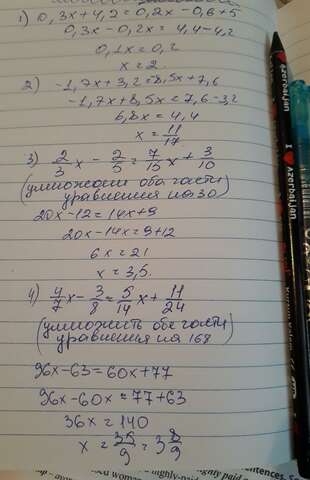 1) 0,3x+4,2=0,2x-0,6+5
0,3x-0,2x=4,4-4,2
0,1x=0,2
x=2
2) -1,7x+3,2=8,5x+7,6
-1,7x+8,5x=7,6-3,2
6,8x=4,4
x=11/17
3) 2/3x-2/5=7/15x+3/10
(умножаем обе части
уравнения на 30)
20x-12=14x+9
20x-14x=9+12
6x=21
x=3,5.
4) 4/7x-3/8=5/14x+11/24
(умножить обе части
уравнения на 168)
96x-63=60x+77
96x-60x=77+63
36x=140
x=35/9=3 8/9
I ♥ Azerbaijan
Azerbaijan
highly-paid